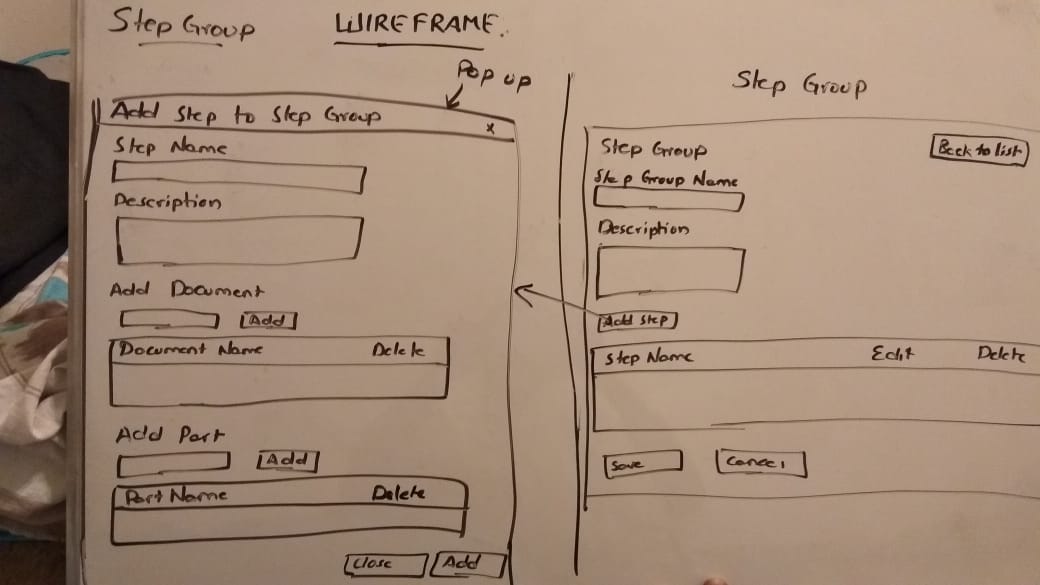 Step Group WIREFRAME.
Pop up
Add Step to Step Group x
Step Name
Description
Add Document
Add
Document Name Delete
Add Part
Add
Part Name Delete
Close Add
Step Group
Step Group Back to list
Step Group Name
Description
Add Step
Step Name Edit Delete
Save Cancel